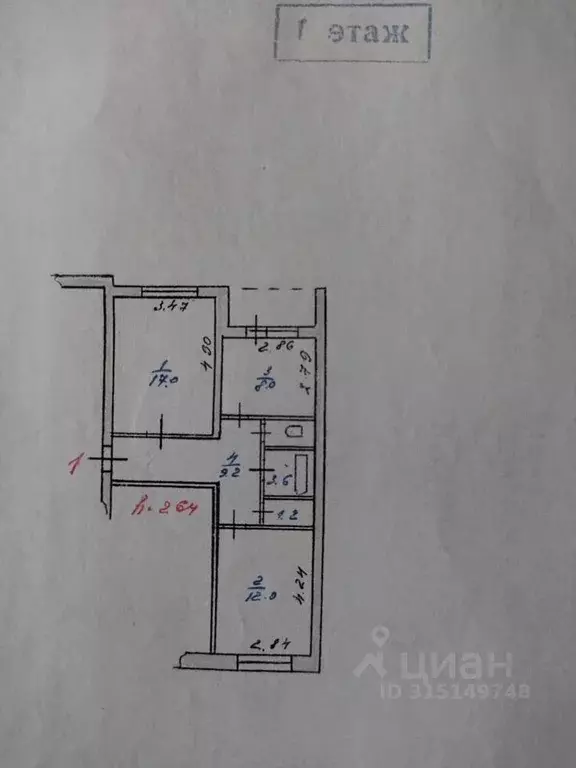 1 этаж
3.47
4.90
1
17.0
2.86
2.79
3
8.0
1
4
9.2
3.6
1.2
h=2.64
2
12.0
4.24
2.84
циан
ID 315149748